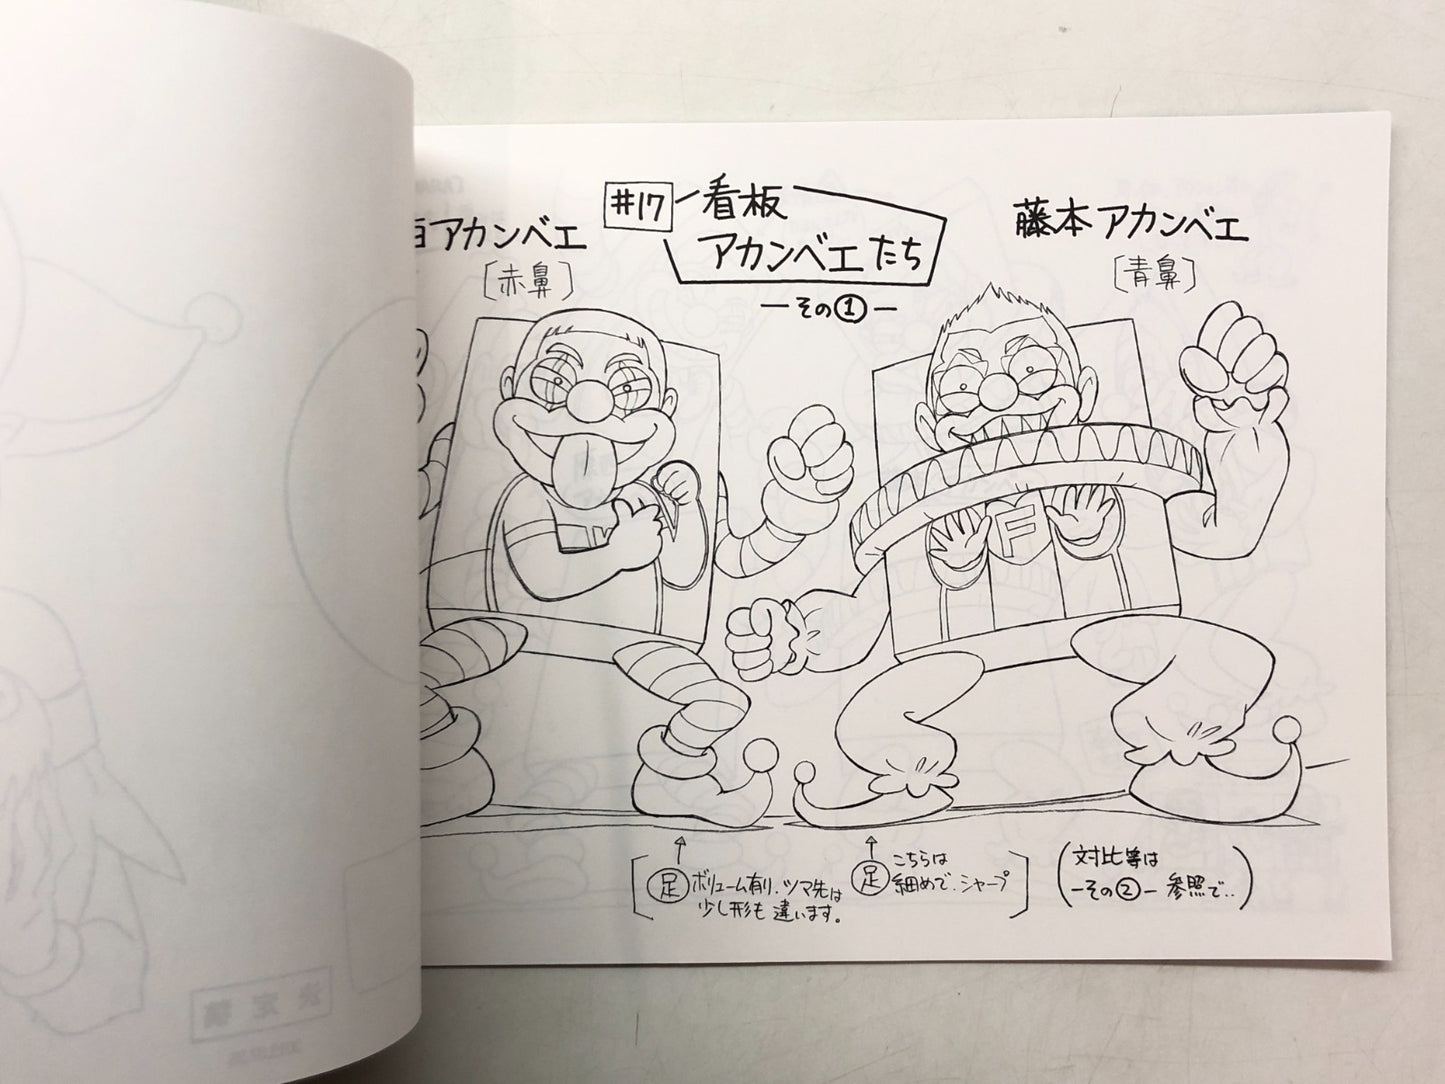 #17
看板
アカンベエたち
—その①—
アカンベエ
[赤鼻]
藤本アカンベエ
[青鼻]
F
足 ボリューム有り、ツマ先は
少し形も違います。
足 こちらは
細めで、シャープ
(対比等は
—その②— 参照で‥)